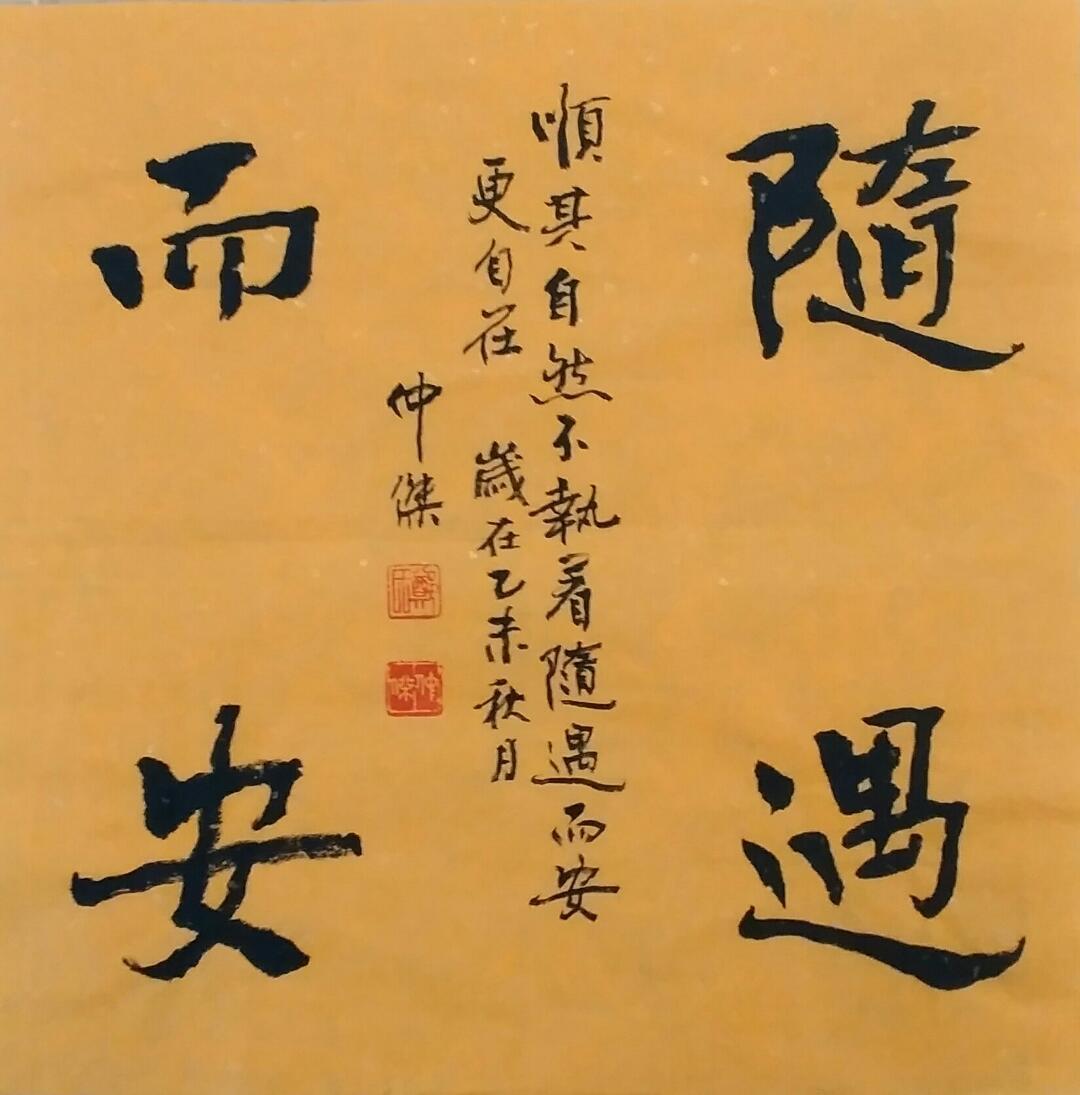 隨遇
而安
順其自然不執着隨遇而安
更自在 歲在乙未秋月
仲傑
鄭氏
仲傑